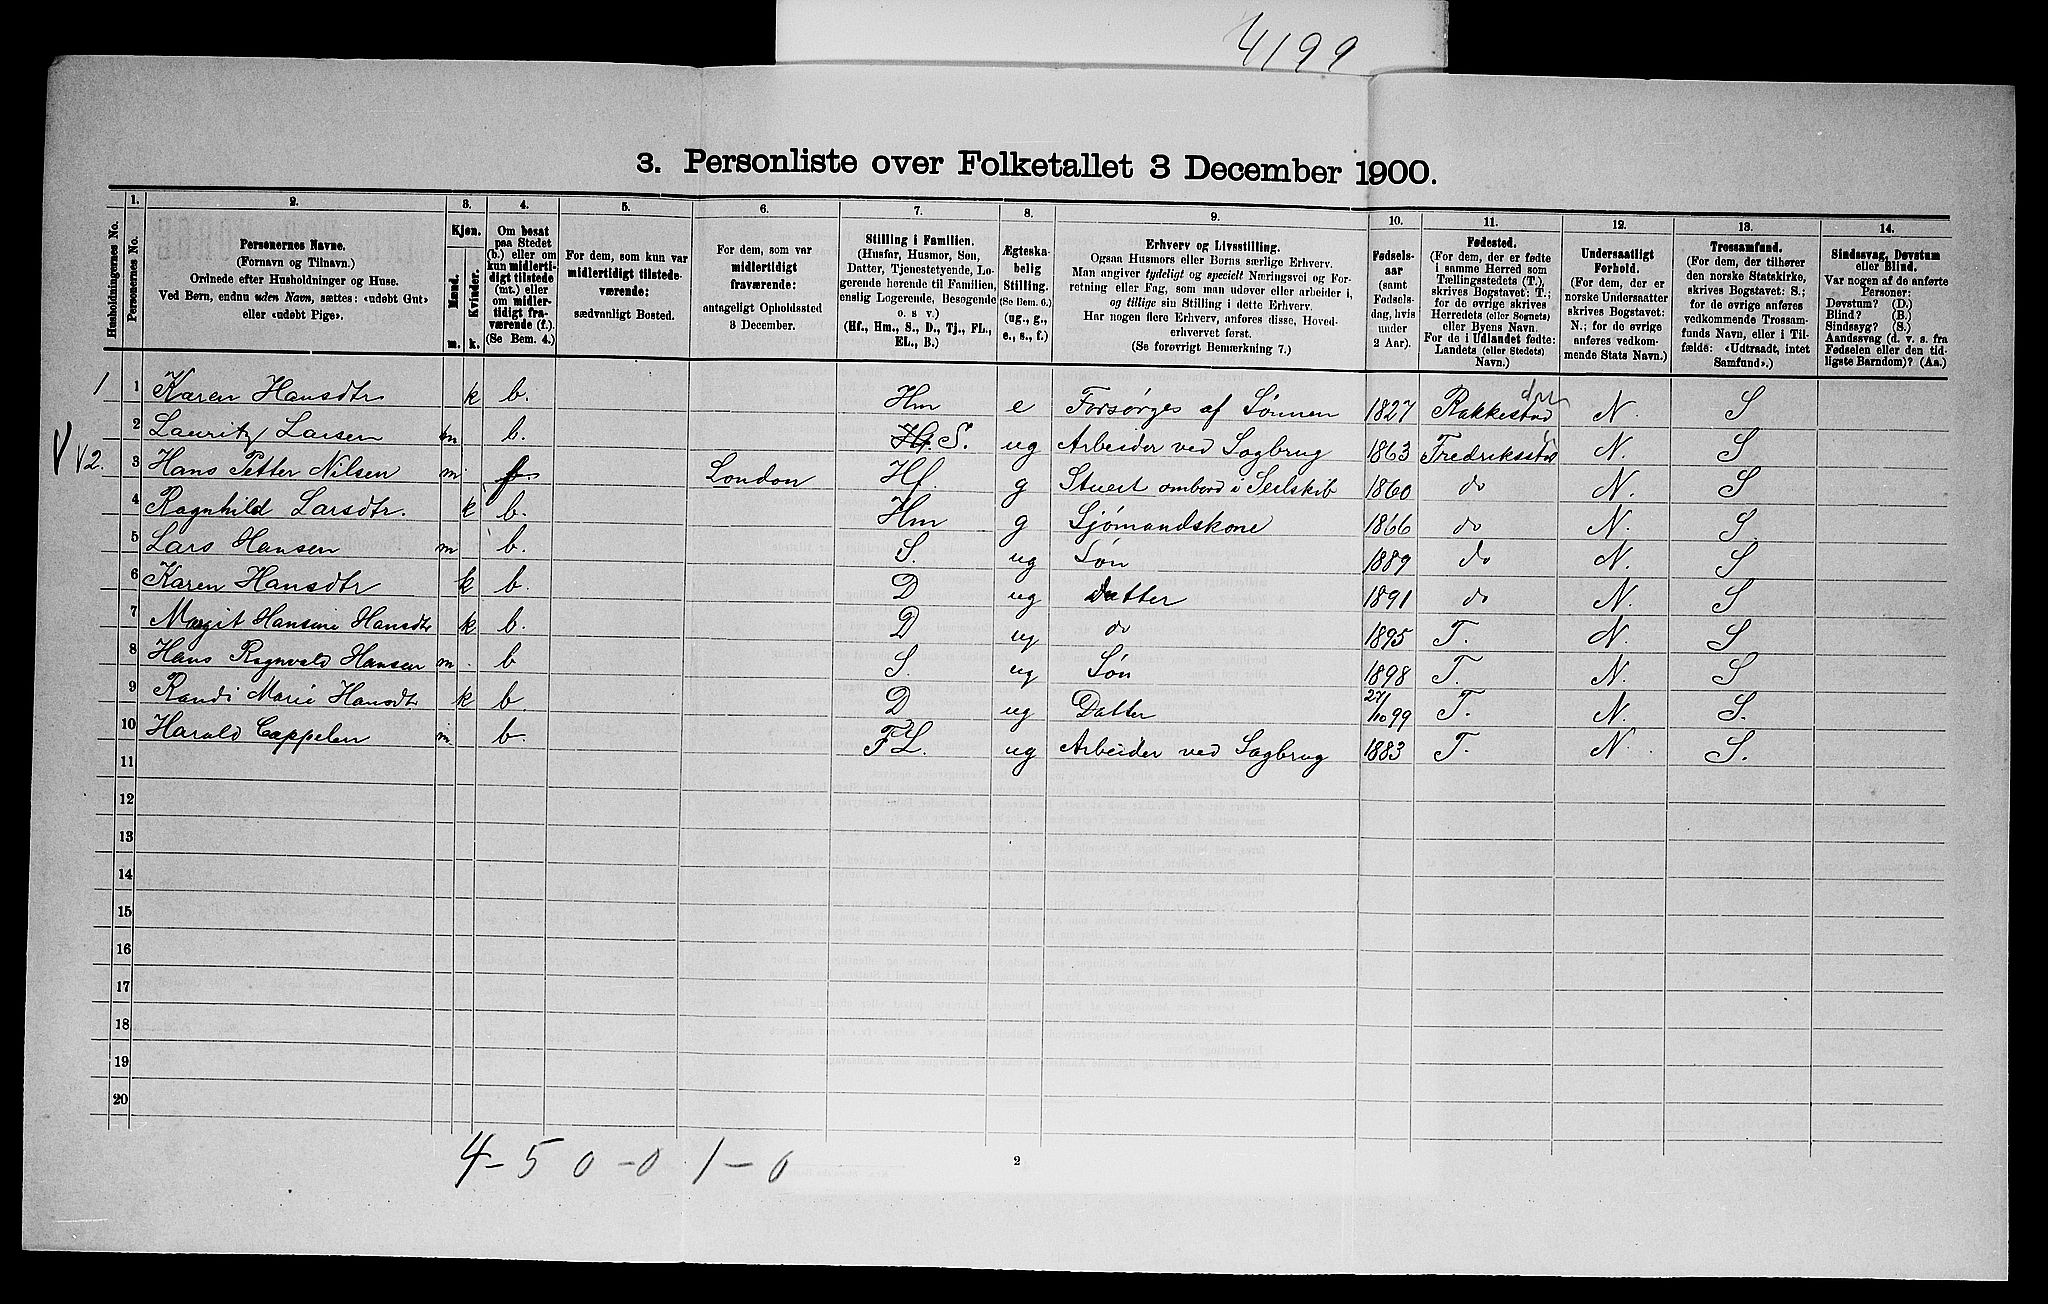 4199
3. Personliste over Folketallet 3 December 1900.
Husholdningernes No.
1.
Personernes No.
2.
Personernes Navne.
(Fornavn og Tilnavn.)
Ordnede efter Husholdninger og Huse.
Ved Børn, endnu uden Navn, sættes: «udøbt Gut»
eller «udøbt Pige».
3.
Kjøn.
Mænd.
m.
Kvinder.
k.
4.
Om bosat
paa Stedet
(b.) eller om
kun midlerti-
digt tilstede
(mt.) eller
om midler-
tidigt fra-
værende (f.).
(Se Bem. 4.)
5.
For dem, som kun var
midlertidigt tilstede-
værende:
sædvanligt Bosted.
6.
For dem, som var
midlertidigt
fraværende:
antageligt Opholdssted
3 December.
7.
Stilling i Familien.
(Husfar, Husmor, Søn,
Datter, Tjenestetyende, Lo-
gerende hørende til Familien,
enslig Logerende, Besøgende
o. s v.)
(Hf., Hm., S., D., Tj., FL.,
EL., B.)
8.
Ægteska-
belig
Stilling.
(Se Bem. 6.)
(ug., g.,
e., s., f.)
9.
Erhverv og Livsstilling.
Ogsaa Husmors eller Børns særlige Erhverv.
Man angiver tydeligt og specielt Næringsvei og For-
retning eller Fag, som man udøver eller arbeider i,
og tillige sin Stilling i dette Erhverv.
Har nogen flere Erhverv, anføres disse, Hoved-
erhvervet først.
(Se forøvrigt Bemærkning 7.)
10.
Fødsels-
aar
(samt
Fødsels-
dag, hvis
under
2 Aar).
11.
Fødested.
(For dem, der er fødte
i samme Herred som
Tællingsstedets (T.),
skrives Bogstavet: T.;
for de øvrige skrives
Herredets (eller Sognets)
eller Byens Navn.
For de i Udlandet fødte:
Landets (eller Stedets)
Navn.)
12.
Undersaatligt
Forhold.
(For dem, der er
norske Undersaatter
skrives Bogstavet:
N.; for de øvrige
anføres vedkom-
mende Stats Navn.)
13.
Trossamfund.
(For dem, der tilhører
den norske Statskirke,
skrives Bogstavet: S.;
for de øvrige anføres
vedkommende Trossam-
funds Navn, eller i Til-
fælde: «Udtraadt, intet
Samfund».)
14.
Sindssvag, Døvstum
eller Blind.
Var nogen af de anførte
Personer:
Døvstum? (D.)
Blind? (B.)
Sindssyg? (S.)
Aandssvag (d. v. s. fra
Fødselen eller den tid-
ligste Barndom)? (Aa.)
1 1 Karen Hansdtr k b. Hm e Forsørges af Sønnen 1827 Rakkestad N. S
2 Lauritz Larsen m b. Hf. S. ug Arbeider ved Sagbrug 1863 Fredriksstad N. S
2. 3 Hans Petter Nilsen m f. London Hf. g Stuert ombord i Seilskib 1860 do N. S
4 Ragnhild Larsdtr. k b. Hm g Sjømandskone 1866 do N. S.
5 Lars Hansen m b. S. ug Søn 1889 do N. S
6 Karen Hansdtr k b. D ug Datter 1891 do N. S
7 Margit Hansine Hansdtr k b. D ug do 1895 T. N. S
8 Hans Ragnvald Hansen m. b S. ug Søn 1898 T. N. S
9 Randi Marie Hansdtr k b D ug Datter 27/10 99 T. N. S.
10 Harald Cappelen m. b. FL. ug Arbeider ved Sagbrug 1883 T. N. S.
11
12
13
14
15
16
17
18
19
20
4-5 0-0 1-0
2